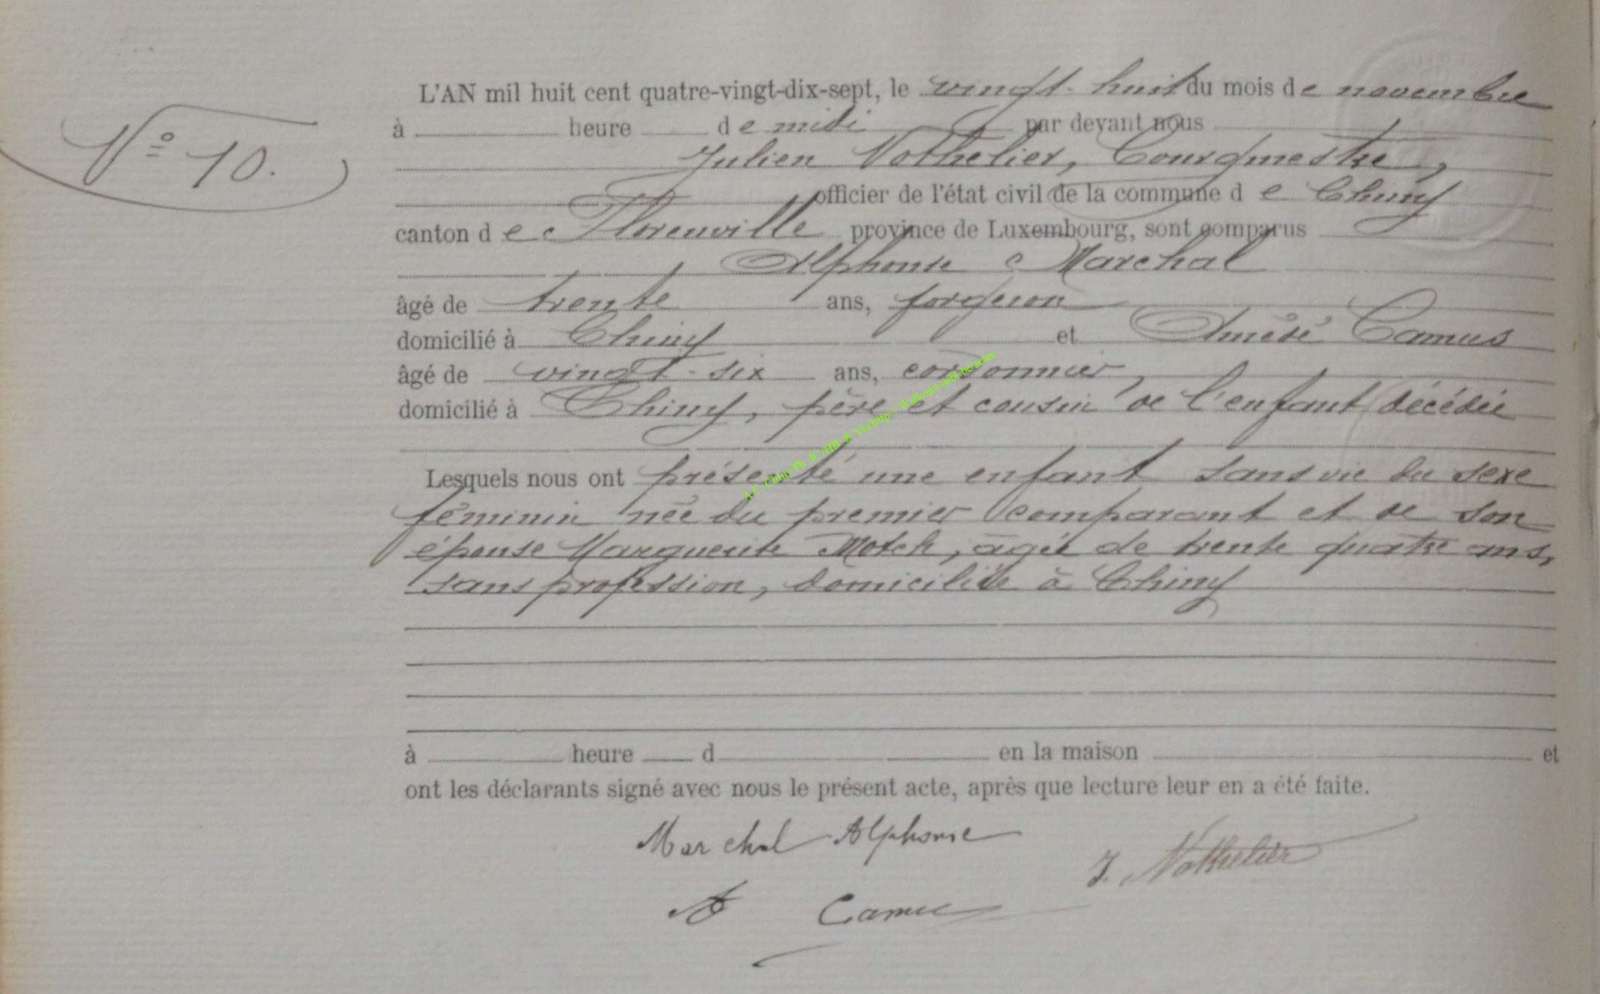 N° 10.
L'AN mil huit cent quatre-vingt-dix-sept, le vingt-huit du mois de novembre
à heure de midi par devant nous
Julien Nothelier, Bourgmestre,
officier de l'état civil de la commune de Chiny
canton de Florenville province de Luxembourg, sont comparus
Alphonse Marchal
âgé de trente ans, forgeron
domicilié à Chiny et Amédé Camus
âgé de vingt-six ans, cordonnier,
domicilié à Chiny, père et cousin de l'enfant décédée
Lesquels nous ont présenté une enfant sans vie du sexe
féminin née du premier comparant et de son
épouse Marguerite Motch, âgée de trente quatre ans,
sans profession, domiciliée à Chiny
à heure d en la maison et
ont les déclarants signé avec nous le présent acte, après que lecture leur en a été faite.
Marchal Alphonse
J. Nothelier
A Camus